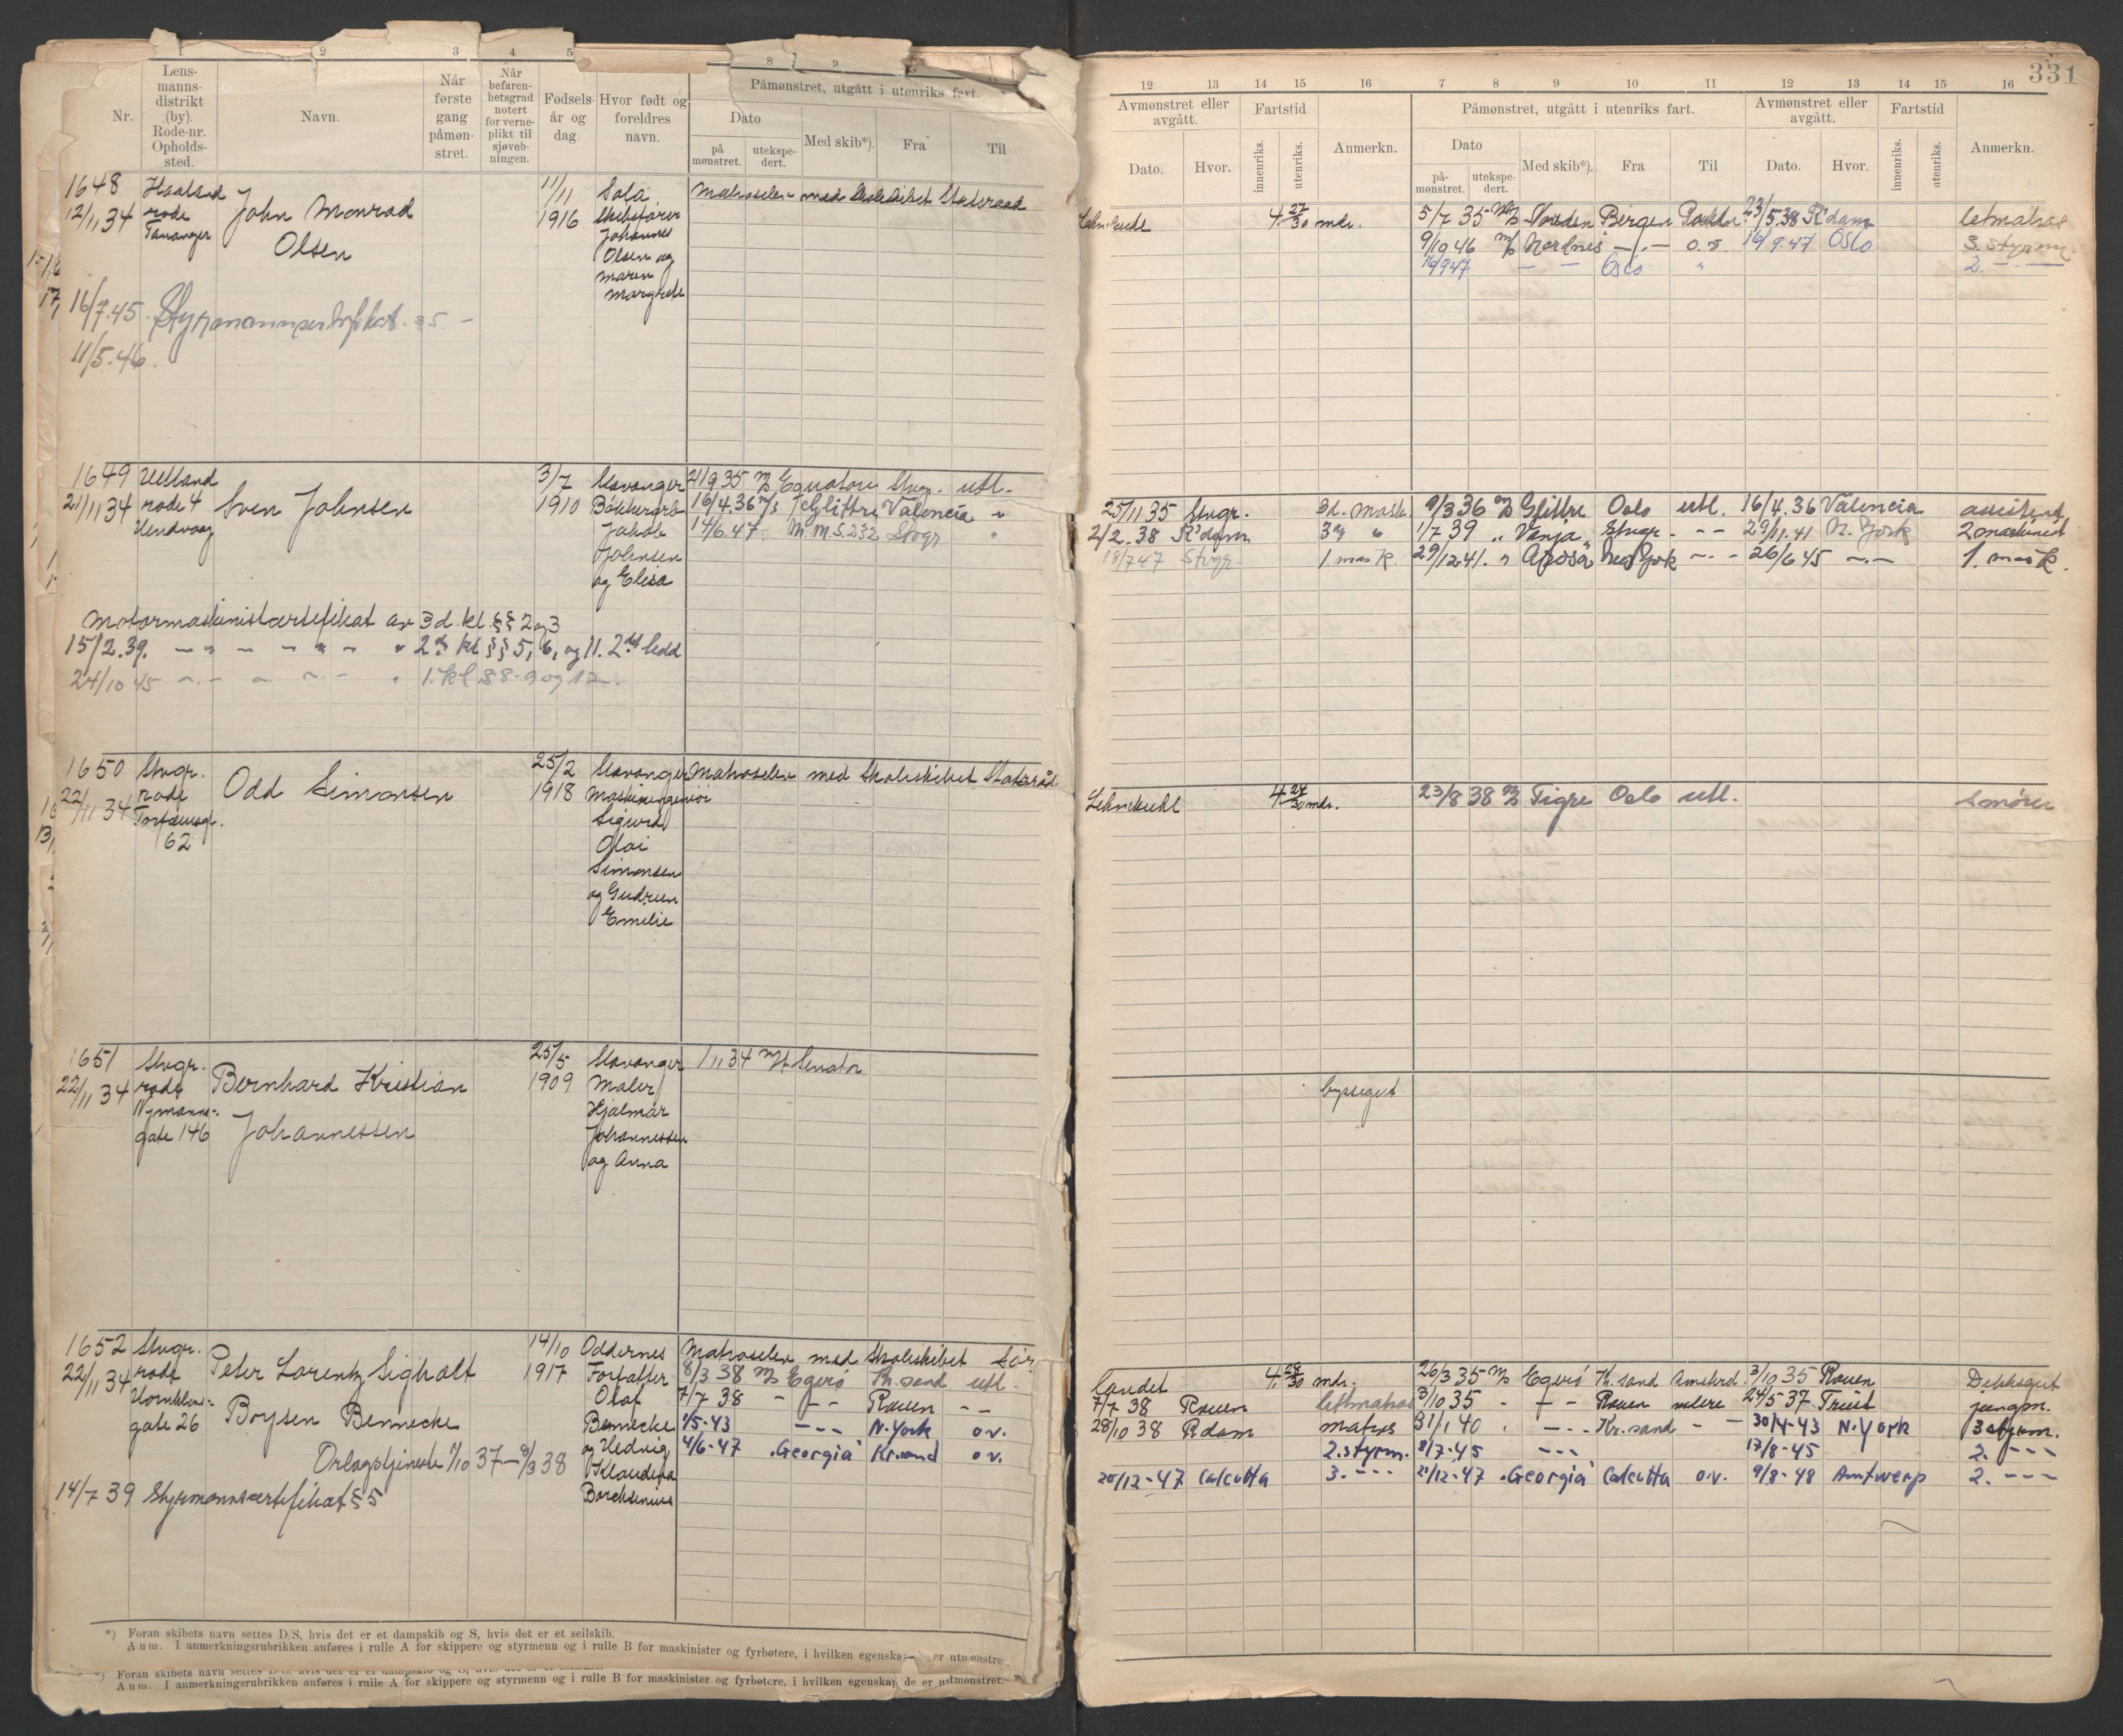 331
1 2 3 4 5 8 9
Nr.
Lens-
manns-
distrikt
(by).
Rode-nr.
Opholds-
sted.
Navn.
Når
første
gang
påmøn-
stret.
Når
befaren-
hetsgrad
notert
for verne-
plikt til
sjøveb-
ningen.
Fødsels-
år og
dag.
Hvor født og
foreldres
navn.
Påmønstret, utgått i utenriks fart.
Dato
på
mønstret.
utekspe-
dert.
Med skib*).
Fra
Til
12 13 14 15 16 7 8 9 10 11 12 13 14 15 16
Avmønstret eller
avgått.
Dato.
Hvor.
Fartstid
innenriks.
utenriks.
Anmerkn.
Påmønstret, utgått i utenriks fart.
Dato
på-
mønstret.
utekspe-
dert.
Med skib*).
Fra
Til
Avmønstret eller
avgått.
Dato.
Hvor.
Fartstid
innenriks.
utenriks.
Anmerkn.
1648
12/11 34
Haaland
rode
Tananger
John Monrad
Olsen
11/11
1916
Sola
Skibsfører
Johannes
Olsen og
Maren
Margrete
Matroselev med Skoleskibet Statsraad
Lehmkuhl 4 27/30 mdr.
5/7 35 M/S Norden Bergen 23/5.38 R'dam letmatros
9/10 46 M/S Nordnes -"- o.s. 16/9.47 Oslo 3. styrm.
16/9 47 — — Oslo " 2. —
16/7.45. Styrmannsertifikat §5 -
11/5.46.
1649
21/11 34
Hetland
rode 4
Hundvaag
Sven Johnsen
3/7
1910
Stavanger
Bøkkerarb
Jakob
Johnsen
og Elisa
21/9 35 M/S Equator Stvgr. utl.
16/4.36 M/S Glittre Valencia "
14/6.47 M.M.S.232 Stvgr "
25/11 35 Stvgr. 3d. mask.
2/2.38 R'dam 3dj "
18/7 47 Stvgr. 1 mask.
9/3 36 M/S Glittre Oslo utl. 16/4.36 Valencia assistent
1/7 39 " Vanja " Stvgr. - - 29/11.41 N. York 2 maskinist
29/12.41. " New York -.- 26/6 45 -.- 1. mask.
Motormaskinistcertifikat av 3d. kl. §§ 2 og 3
15/2.39. - " - - " - " 2dj kl §§ 5, 6, og 11. 2det ledd
24/10 45 -.- - -.- " 1. kl §8. 9 og 12.
1650
22/11 34
Stvgr.
rode
62
Odd Simonsen
25/2
1918
Stavanger
Maskiningeniør
Sigurd
Olai
Simonsen
og Gudrun
Emelie
Matroselev med Skoleskibet Statsråd
Lehmkuhl 4 27/30 mdr.
23/8 38 M/S Tigre Oslo utl. Smører
1651
22/11 34
Stvgr.
rode
Nymanns-
gate 146
Bernhard Kristian
Johannessen
25/5
1909
Stavanger
Maler
Hjalmar
Johannessen
og Anna
1/11 34 M/T Senator
byssegut
1652
22/11 34
Stvgr.
rode
Hornklou-
gate 26
Peter Lorentz Sigholt
Boysen Bennecke
14/10
1917
Oddernes
Forfatter
Olaf
Bennecke
og Hedvig
Klaudina
Borchsenius
Orlogstjeneste 1/10 37 - 9/3 38
14/7 39 Styrmannscertefikat § 5
Matroselev med Skoleskibet Sør
8/3 38 M/S Egerø Kr.sand utl.
7/7 38 - -"- Rouen - -
1/5-43 --- N.York o.v.
4/6-47 "Georgia" Kr.sand o.v.
landet 4 28/30 mdr.
7/7 38 Rouen letmatros
28/10 38 Rdam matros
2. styrm.
20/12-47 Calcutta 3. ---
26/3 35 M/S Egerø Kr.sand Amsterd. 3/10 35 Rouen Dekksgut
3/10 35 - -"- Rouen videre 24/5 37 Triest jungm.
31/1 40 . -.- Kr.sand - - 30/4-43 N.York 3 styrm.
8/7-45 --- 17/8-45 2. ---
21/12-47 "Georgia" Calcutta o.v. 9/8-48 Antwerp 2. ---
*) Foran skibets navn settes D/S, hvis det er et dampskib og S, hvis det er et seilskib.
Anm. I anmerkningsrubrikken anføres i rulle A for skippere og styrmenn og i rulle B for maskinister og fyrbøtere, i hvilken egenska er utmønstre
Anm. I anmerkningsrubrikken anføres i rulle A for skippere og styrmenn og i rulle B for maskinister og fyrbøtere, i hvilken egenskap de er utmønstret.